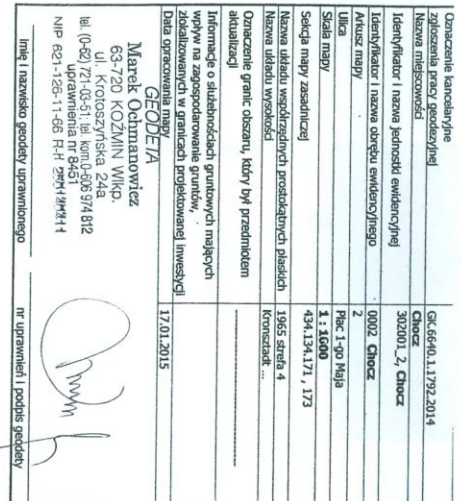 Oznaczenie kancelaryjne
zgłoszenia pracy geodezyjnej
GK.6640.1.1792.2014
Nazwa miejscowości
Chocz
Identyfikator i nazwa jednostki ewidencyjnej
302001_2, Chocz
Identyfikator i nazwa obrębu ewidencyjnego
0002 Chocz
Arkusz mapy
2
Ulica
Plac 1-go Maja
Skala mapy
1 : 1000
Sekcja mapy zasadniczej
434.134.171 , 173
Nazwa układu współrzędnych prostokątnych płaskich
1965 strefa 4
Nazwa układu wysokości
Kronsztadt ...
Oznaczenie granic obszaru, który był przedmiotem
aktualizacji
Informacje o służebnościach gruntowych mających
wpływ na zagospodarowanie gruntów,
zlokalizowanych w granicach projektowanej inwestycji
Data opracowania mapy
17.01.2015
GEODETA
Marek Ochmanowicz
63-720 KOŹMIN Wlkp.
ul. Krotoszyńska 24a
tel. (0-62) 721-03-51; tel. kom. 0-606 974 812
uprawnienia nr 8451
NIP 621-126-11-66
imię i nazwisko geodety uprawnionego
nr uprawnień i podpis geodety